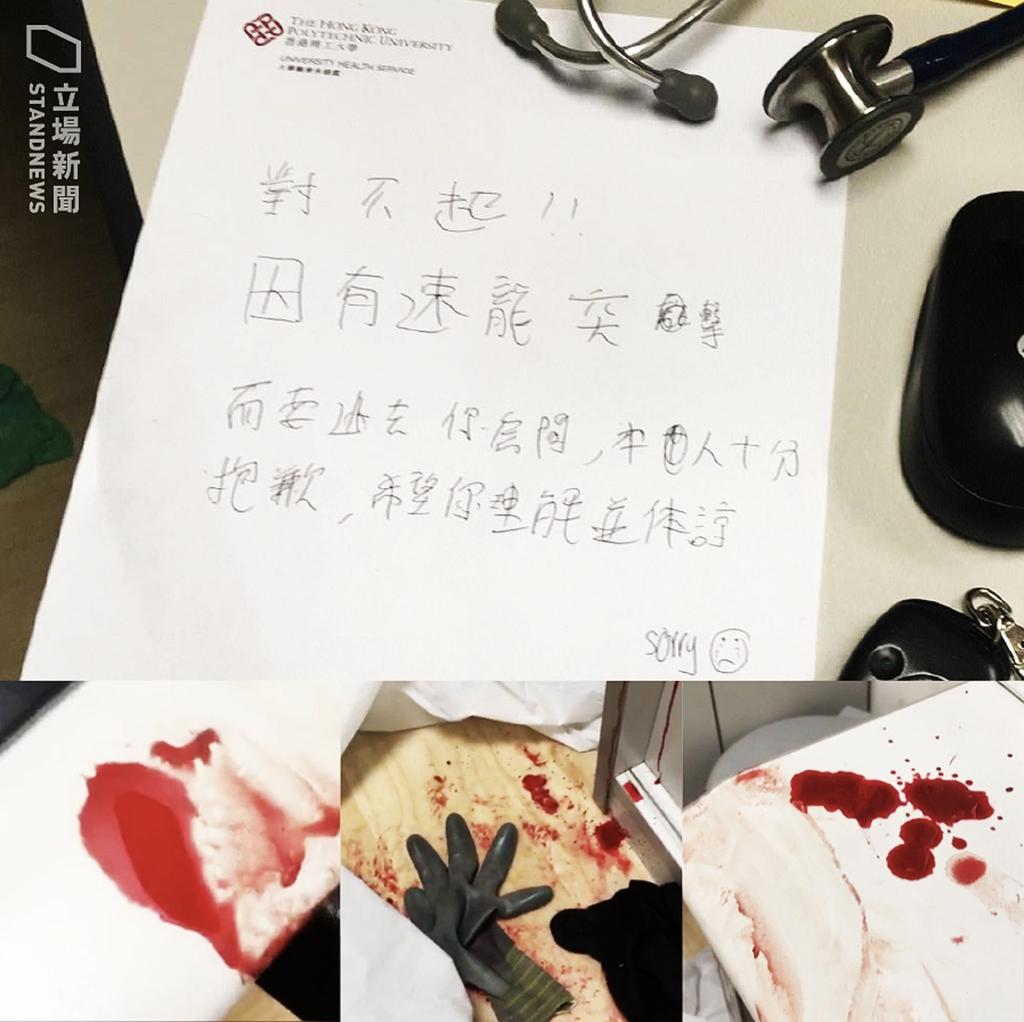 立場新聞
STANDNEWS
THE HONG KONG
POLYTECHNIC UNIVERSITY
香港理工大學
UNIVERSITY HEALTH SERVICE
對不起!!
因有速龍突擊
而要逃去你房間,本人十分
抱歉,希望你理解並体諒
sorry